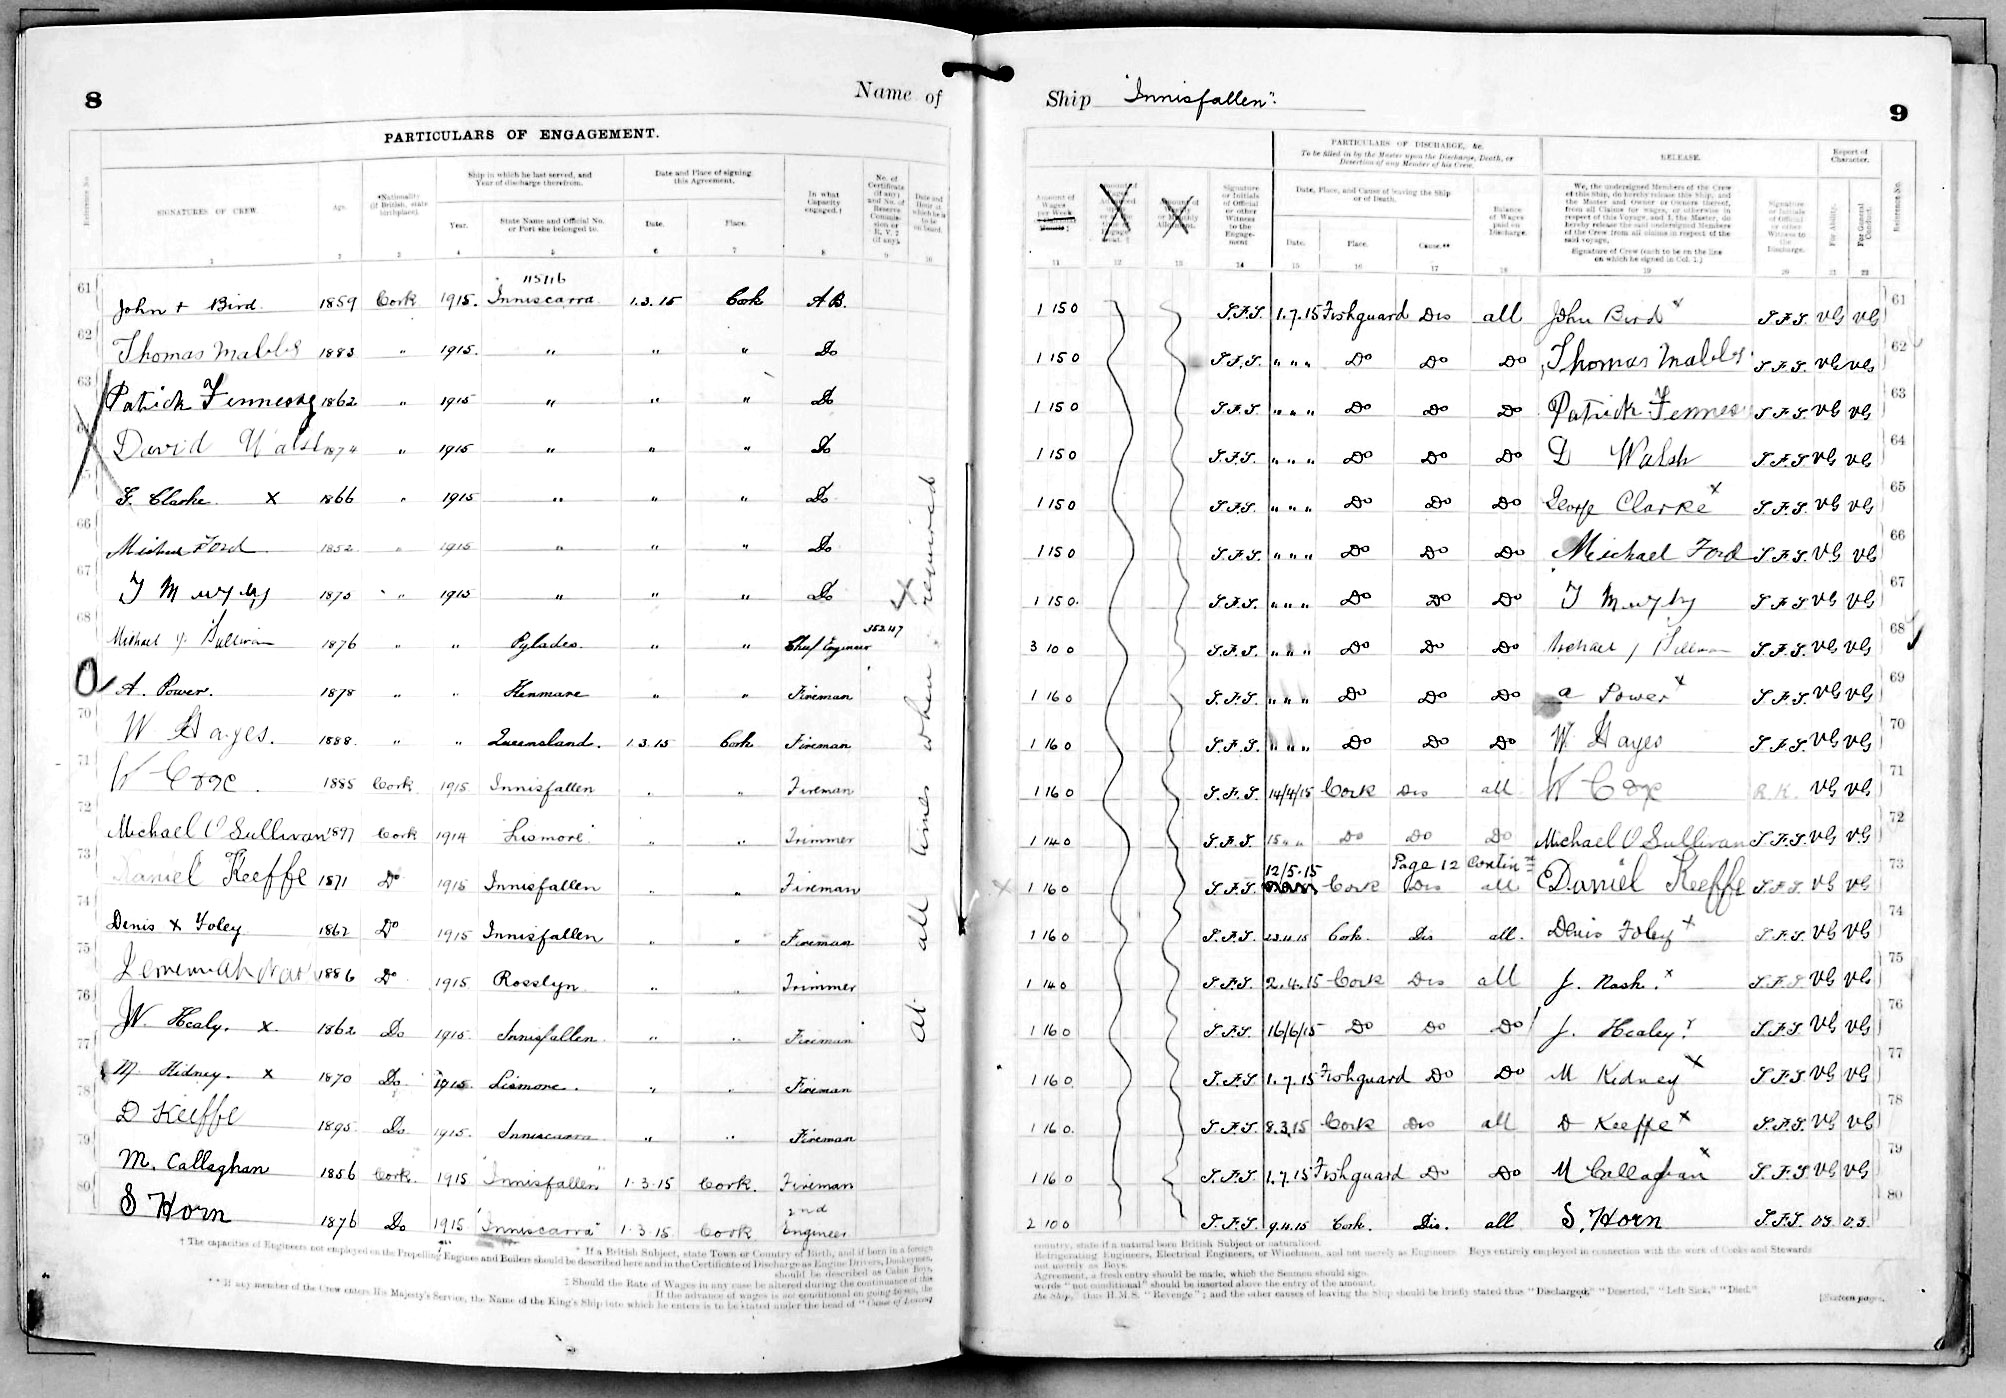 8
Name of
PARTICULARS OF ENGAGEMENT.
Reference No.
SIGNATURES OF CREW.
Age.
*Nationality (If British, state birthplace).
Ship in which he last served, and Year of discharge therefrom.
Year.
State Name and Official No. or Port she belonged to.
Date and Place of signing this Agreement.
Date.
Place.
In what Capacity engaged.†
No. of Certificate (if any) and No. of Reserve Commission or R.V. 2 (if any).
1 2 3 4 5 6 7 8 9 10
61 John + Bird. 1859 Cork 1915. 115116 Inniscarra 1.3.15 Cork A.B.
62 Thomas Mabbs 1883 " 1915. " " " Do
63 Patrick Fennessy 1862 " 1915 " " " Do
David Walsh 1874 " 1915 " " " Do
G. Clarke X 1866 " 1915 " " " Do
66 Michael Ford 1852 " 1915 " " " Do
67 T Murphy 1875 " 1915 " " " Do
68 Michael J. Sullivan 1876 " " Pylades. " " Chief Engineer 35247
A. Power. 1878 " " Kenmare " " Fireman
70 W Hayes. 1888 " " Queensland. 1.3.15 Cork Fireman
71 W Coxe. 1885 Cork 1915 Innisfallen " " Fireman
72 Michael O Sullivan 1897 Cork 1914 "Lismore" " " Trimmer
73 Daniel Keeffe 1871 Do 1915 Innisfallen " " Fireman
74 Denis X Foley 1862 Do 1915 Innisfallen " " Fireman
75 Jeremiah Nash 1886 Do 1915 Rosslyn " " Trimmer
76 W. Healy. x 1862 Do 1915. Innisfallen " " Fireman
77 M. Kidney. x 1870 Do 1915. Lismore. " " Fireman
78 D Keeffe 1895 Do 1915. Inniscarra " " Fireman
79 M. Callaghan 1856 Cork. 1915 "Innisfallen" 1.3.15 Cork. Fireman
80 S Horn 1876 Do 1915 "Inniscarra" 1.3.15 Cork 2nd Engineer
at all times when X required
† The capacities of Engineers not employed on the Propelling Engines and Boilers should be described here and in the Certificate of Discharge as Engine Drivers, Donkeymen,
* If a British Subject, state Town or Country of Birth, and if born in a foreign
should be described as Cabin Boys,
‡ Should the Rate of Wages in any case be altered during the continuance of this
If the advance of wages is not conditional on going to sea, the
** If any member of the Crew enters His Majesty's Service, the Name of the King's Ship into which he enters is to be stated under the head of "Cause of Leaving
Ship "Innisfallen".
9
PARTICULARS OF DISCHARGE, &c.
To be filled in by the Master upon the Discharge, Death, or Desertion of any Member of his Crew.
RELEASE.
Report of Character.
Amount of Wages per Week
Signature or Initials of Official or other Witness to the Engagement
Date, Place, and Cause of leaving the Ship or of Death.
Date.
Place.
Cause.**
Balance of Wages paid on Discharge.
We, the undersigned Members of the Crew of this Ship, do hereby release this Ship, and the Master and Owner or Owners thereof, from all Claims for wages, or otherwise in respect of this Voyage, and I, the Master, do hereby release the said undersigned Members of the Crew from all claims in respect of the said voyage.
Signature of Crew (each to be on the line on which he signed in Col. 1.)
Signature or Initials of Official or other Witness to the Discharge.
For Ability.
For General Conduct.
Reference No.
11 12 13 14 15 16 17 18 19 20 21 22
1 15 0 S.F.S. 1.7.15 Fishguard Dis all John Bird x S.F.S. VG VG 61
1 15 0 S.F.S. " " " Do Do Do Thomas Mabbs S.F.S. VG VG 62
1 15 0 S.F.S. " " " Do Do Do Patrick Fennessy S.F.S. VG VG 63
1 15 0 S.F.S. " " " Do Do Do D Walsh S.F.S VG VG 64
1 15 0 S.F.S " " " Do Do Do George Clarke x S.F.S. VG VG 65
1 15 0 S.F.S. " " " Do Do Do Michael Ford S.F.S. VG VG 66
1 15 0. S.F.S. " " " Do Do Do T Murphy S.F.S VG VG 67
3 10 0 S.F.S. " " " Do Do Do Michael J Sullivan S.F.S. VG VG 68
1 16 0 S.F.S. " " " Do Do Do a Power x S.F.S VG VG 69
1 16 0 S.F.S. " " " Do Do Do W Hayes S.F.S VG VG 70
1 16 0 S.F.S. 14/4/15 Cork Dis all W Coxe R.K. VG VG 71
1 14 0 S.F.S 15 " " Do Do Do Michael O Sullivan S.F.S VG VG 72
12/5.15 Page 12 Contin
1 16 0 S.F.S Cork Dis all Daniel Keeffe S.F.S. VG VG 73
1 16 0 S.F.S. 23.4.15 Cork. Dis all. Denis Foley + S.F.S. VG VG 74
1 14 0 S.F.S. 2.4.15 Cork Dis all J. Nash. x S.F.S VG VG 75
1 16 0 S.F.S 16/6/15 Do Do Do J. Healey. S.F.S. VG VG 76
1 16 0 S.F.S 1.7.15 Fishguard Do Do M Kidney X S.F.S VG VG 77
1 16 0. S.F.S. 8.3.15 Cork Dis all D Keeffe x S.F.S. VG VG 78
1 16 0 S.F.S. 1.7.15 Fishguard Do Do M Callaghan x S.F.S VG VG 79
2 10 0 S.F.S. 9.4.15 Cork. Dis. all S. Horn S.F.S V.G. V.G. 80
country, state if a natural born British Subject or naturalised.
Refrigerating Engineers, Electrical Engineers, or Winchmen, and not merely as Engineers. Boys entirely employed in connection with the work of Cooks and Stewards
not merely as Boys.
Agreement, a fresh entry should be made, which the Seamen should sign.
words "not conditional" should be inserted above the entry of the amount.
the Ship," thus H.M.S. "Revenge"; and the other causes of leaving the Ship should be briefly stated thus "Discharged," "Deserted," "Left Sick," "Died."
[Sixteen pages.